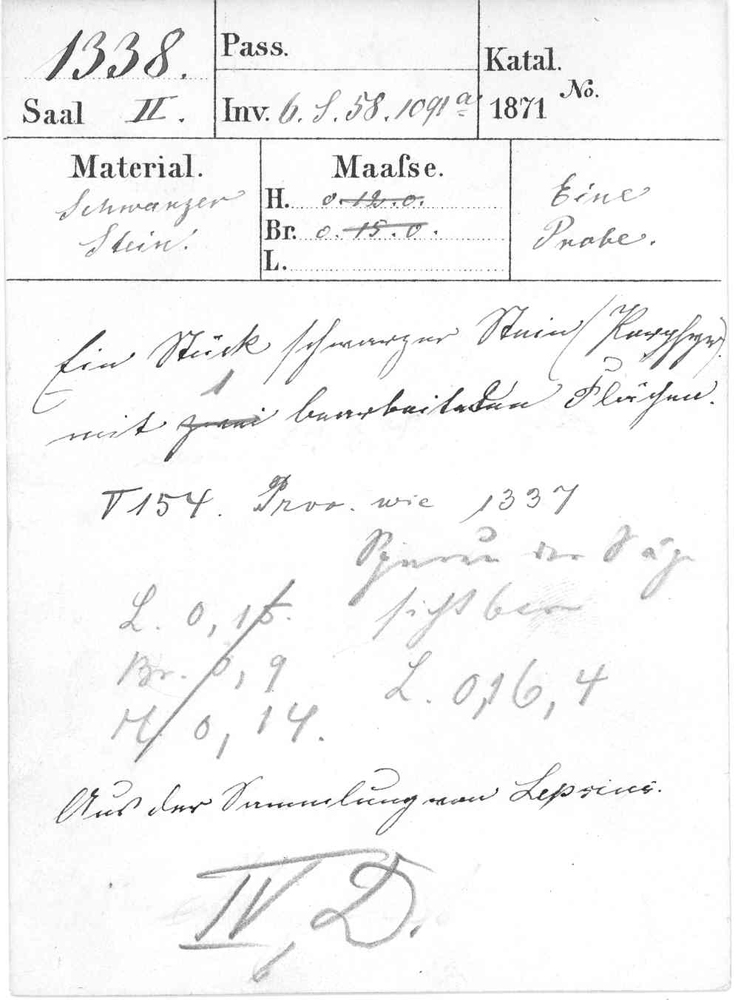 1338.
Saal II.
Pass.
Inv. 6. S. 58. 1091 a
Katal. No.
1871
Material.
Schwarzer
Stein.
Maaſse.
H. 0.12.0.
Br. 0.15.0.
L.
Eine
Probe.
Ein Stück schwarzer Stein (Porphyr)
1
mit zwei bearbeiteten Flächen.
V 154. Prov. wie 1337
Spuren der Säge
sichtbar
L. 0,15.
Br. 0,9
H. 0,14.
L. 0,16,4
Aus der Sammlung von Lepsius.
IV, D.
6